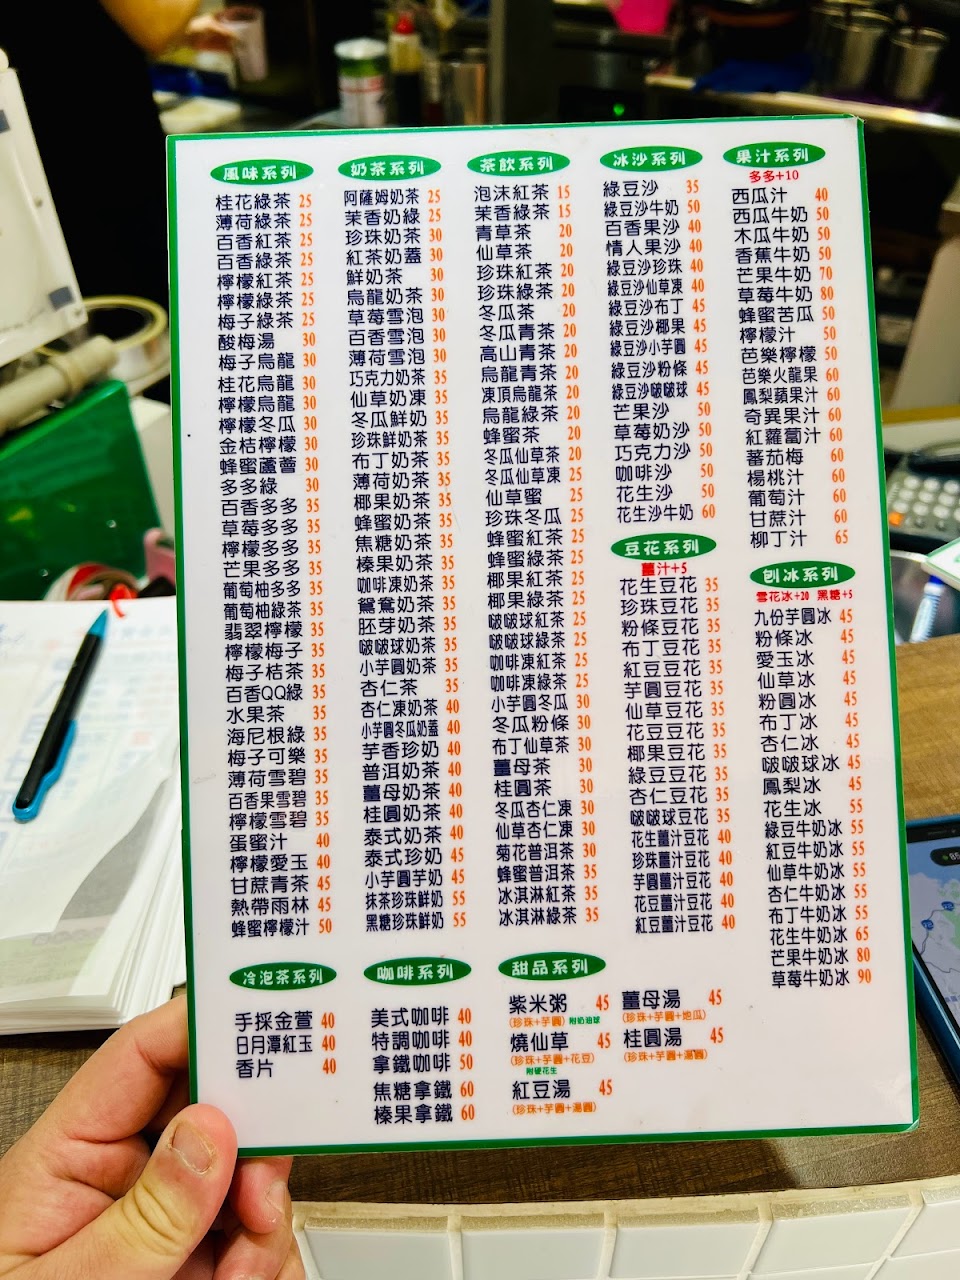 風味系列
桂花綠茶 25
薄荷綠茶 25
百香紅茶 25
百香綠茶 25
檸檬紅茶 25
檸檬綠茶 25
梅子綠茶 25
酸梅湯 30
梅子烏龍 30
桂花烏龍 30
檸檬烏龍 30
檸檬冬瓜 30
金桔檸檬 30
蜂蜜蘆薈 30
多多綠 30
百香多多 35
草莓多多 35
檸檬多多 35
芒果多多 35
葡萄柚多多 35
葡萄柚綠茶 35
翡翠檸檬 35
檸檬梅子 35
梅子桔茶 35
百香QQ綠 35
水果茶 35
海尼根綠 35
梅子可樂 35
薄荷雪碧 35
百香果雪碧 35
檸檬雪碧 35
蛋蜜汁 40
檸檬愛玉 40
甘蔗青茶 45
熱帶雨林 45
蜂蜜檸檬汁 50
奶茶系列
阿薩姆奶茶 25
茉香奶綠 25
珍珠奶茶 30
紅茶奶蓋 30
鮮奶茶 30
烏龍奶茶 30
草莓雪泡 30
百香雪泡 30
薄荷雪泡 30
巧克力奶茶 35
仙草奶凍 35
冬瓜鮮奶 35
珍珠鮮奶茶 35
布丁奶茶 35
薄荷奶茶 35
椰果奶茶 35
蜂蜜奶茶 35
焦糖奶茶 35
榛果奶茶 35
咖啡凍奶茶 35
鴛鴦奶茶 35
胚芽奶茶 35
啵啵球奶茶 35
小芋圓奶茶 35
杏仁茶 35
杏仁凍奶茶 40
小芋圓冬瓜奶蓋 40
芋香珍奶 40
普洱奶茶 40
薑母奶茶 40
桂圓奶茶 40
泰式奶茶 40
泰式珍奶 45
小芋圓芋奶 45
抹茶珍珠鮮奶 55
黑糖珍珠鮮奶 55
茶飲系列
泡沫紅茶 15
茉香綠茶 15
青草茶 20
仙草茶 20
珍珠紅茶 20
珍珠綠茶 20
冬瓜茶 20
冬瓜青茶 20
高山青茶 20
烏龍青茶 20
凍頂烏龍茶 20
烏龍綠茶 20
蜂蜜茶 20
冬瓜仙草茶 20
冬瓜仙草凍 25
仙草蜜 25
珍珠冬瓜 25
蜂蜜紅茶 25
蜂蜜綠茶 25
椰果紅茶 25
椰果綠茶 25
啵啵球紅茶 25
啵啵球綠茶 25
咖啡凍紅茶 25
咖啡凍綠茶 25
小芋圓冬瓜 30
冬瓜粉條 30
布丁仙草茶 30
薑母茶 30
桂圓茶 30
冬瓜杏仁凍 30
仙草杏仁凍 30
菊花普洱茶 30
蜂蜜普洱茶 35
冰淇淋紅茶 35
冰淇淋綠茶 35
冰沙系列
綠豆沙 35
綠豆沙牛奶 50
百香果沙 40
情人果沙 40
綠豆沙珍珠 40
綠豆沙仙草凍 40
綠豆沙布丁 45
綠豆沙椰果 45
綠豆沙小芋圓 45
綠豆沙粉條 45
綠豆沙啵啵球 45
芒果沙 50
草莓奶沙 50
巧克力沙 50
咖啡沙 50
花生沙 50
花生沙牛奶 60
豆花系列
薑汁+5
花生豆花 35
珍珠豆花 35
粉條豆花 35
布丁豆花 35
紅豆豆花 35
芋圓豆花 35
仙草豆花 35
花豆豆花 35
椰果豆花 35
綠豆豆花 35
杏仁豆花 35
啵啵球豆花 35
花生薑汁豆花 40
珍珠薑汁豆花 40
芋圓薑汁豆花 40
花豆薑汁豆花 40
紅豆薑汁豆花 40
果汁系列
多多+10
西瓜汁 40
西瓜牛奶 50
木瓜牛奶 50
香蕉牛奶 50
芒果牛奶 70
草莓牛奶 80
蜂蜜苦瓜 50
檸檬汁 50
芭樂檸檬 50
芭樂火龍果 60
鳳梨蘋果汁 60
奇異果汁 60
紅蘿蔔汁 60
蕃茄梅 60
楊桃汁 60
葡萄汁 60
甘蔗汁 60
柳丁汁 65
刨冰系列
雪花冰+20 黑糖+5
九份芋圓冰 45
粉條冰 45
愛玉冰 45
仙草冰 45
粉圓冰 45
布丁冰 45
杏仁冰 45
啵啵球冰 45
鳳梨冰 45
花生冰 55
綠豆牛奶冰 55
紅豆牛奶冰 55
仙草牛奶冰 55
杏仁牛奶冰 55
布丁牛奶冰 55
花生牛奶冰 65
芒果牛奶冰 80
草莓牛奶冰 90
冷泡茶系列
手採金萱 40
日月潭紅玉 40
香片 40
咖啡系列
美式咖啡 40
特調咖啡 40
拿鐵咖啡 50
焦糖拿鐵 60
榛果拿鐵 60
甜品系列
紫米粥 45
(珍珠+芋圓) 附奶油球
燒仙草 45
(珍珠+芋圓+花豆)
附硬花生
紅豆湯 45
(珍珠+芋圓+湯圓)
薑母湯 45
(珍珠+芋圓+地瓜)
桂圓湯 45
(珍珠+芋圓+湯圓)